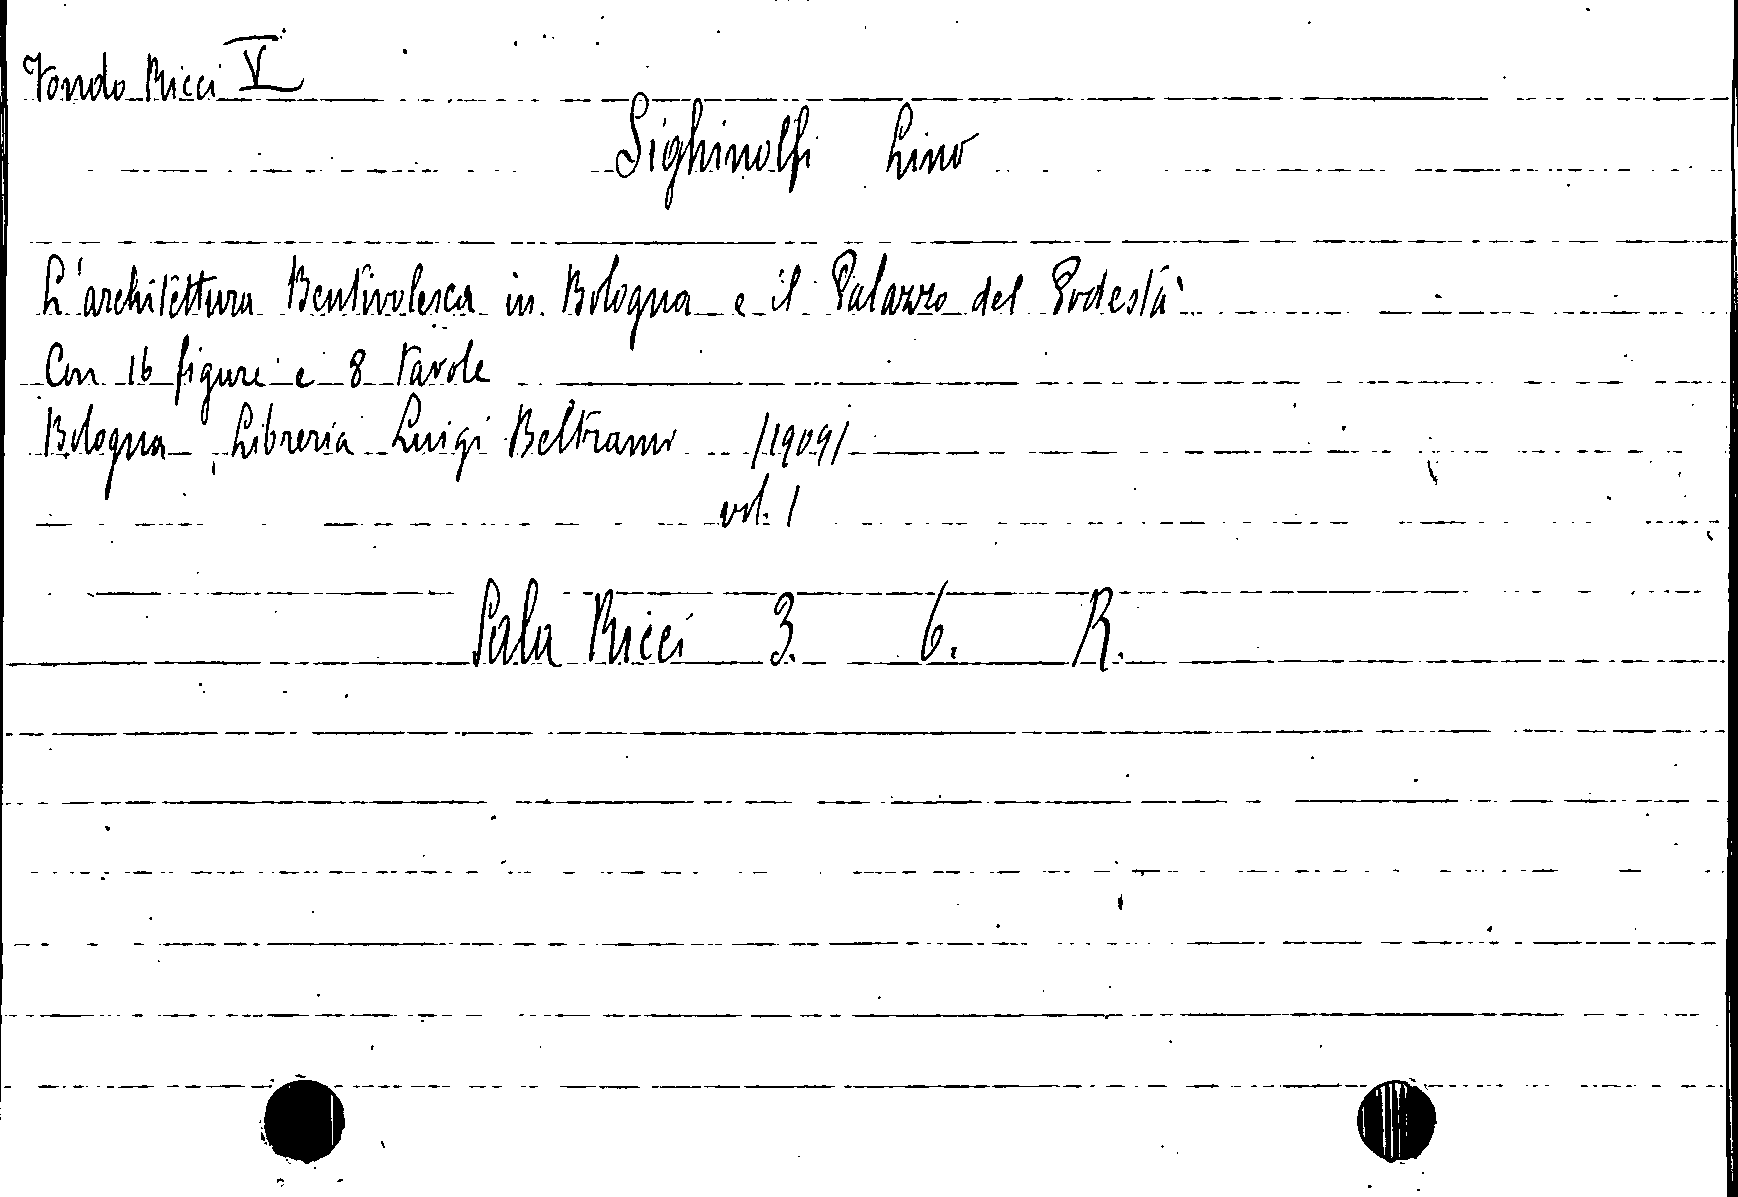 Fondo Ricci V
Sighinolfi Lino
L'architettura Bentivolesca in Bologna e il Palazzo del Podestà
Con 16 figure e 8 tavole
Bologna, Libreria Luigi Beltrami /1909/
vol. 1
Sala Ricci 3. 6. R.